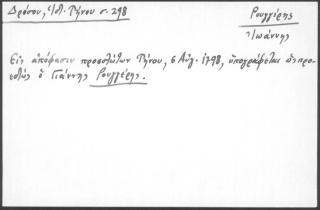 Δρόσου, Ἱστ. Τήνου σ. 298
Ρουγγέρης
Ἰωάννης
Εἰς ἀπόφασιν προεστώτων Τήνου, 6 Αὐγ. 1798, ὑπογράφεται ὡς προ-
εστώς ὁ Γιάννης Ρουγγέρης.